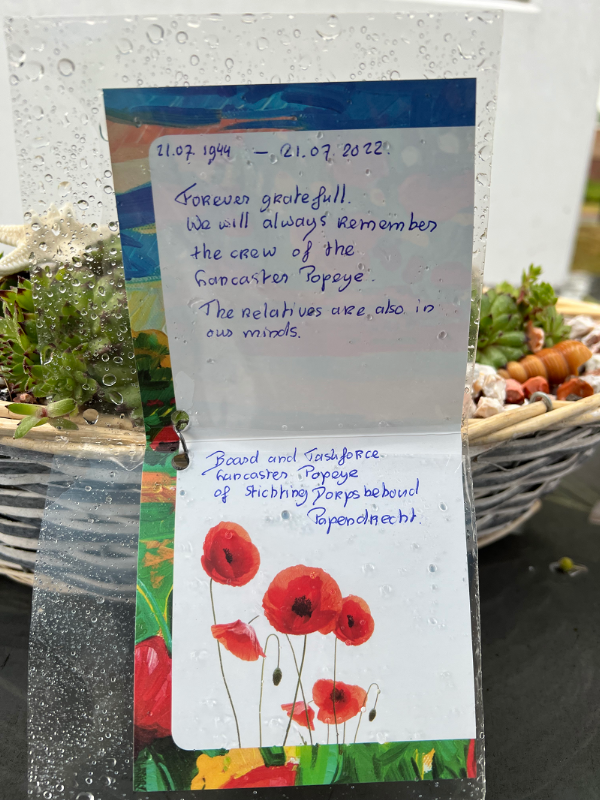 21.07.1944 — 21.07.2022.
Forever gratefull.
We will always remember
the crew of the
Lancaster Popeye.
The relatives are also in
our minds.
Board and Taskforce
Lancaster Popeye
of Stichting Dorpsbehoud
Papendrecht.